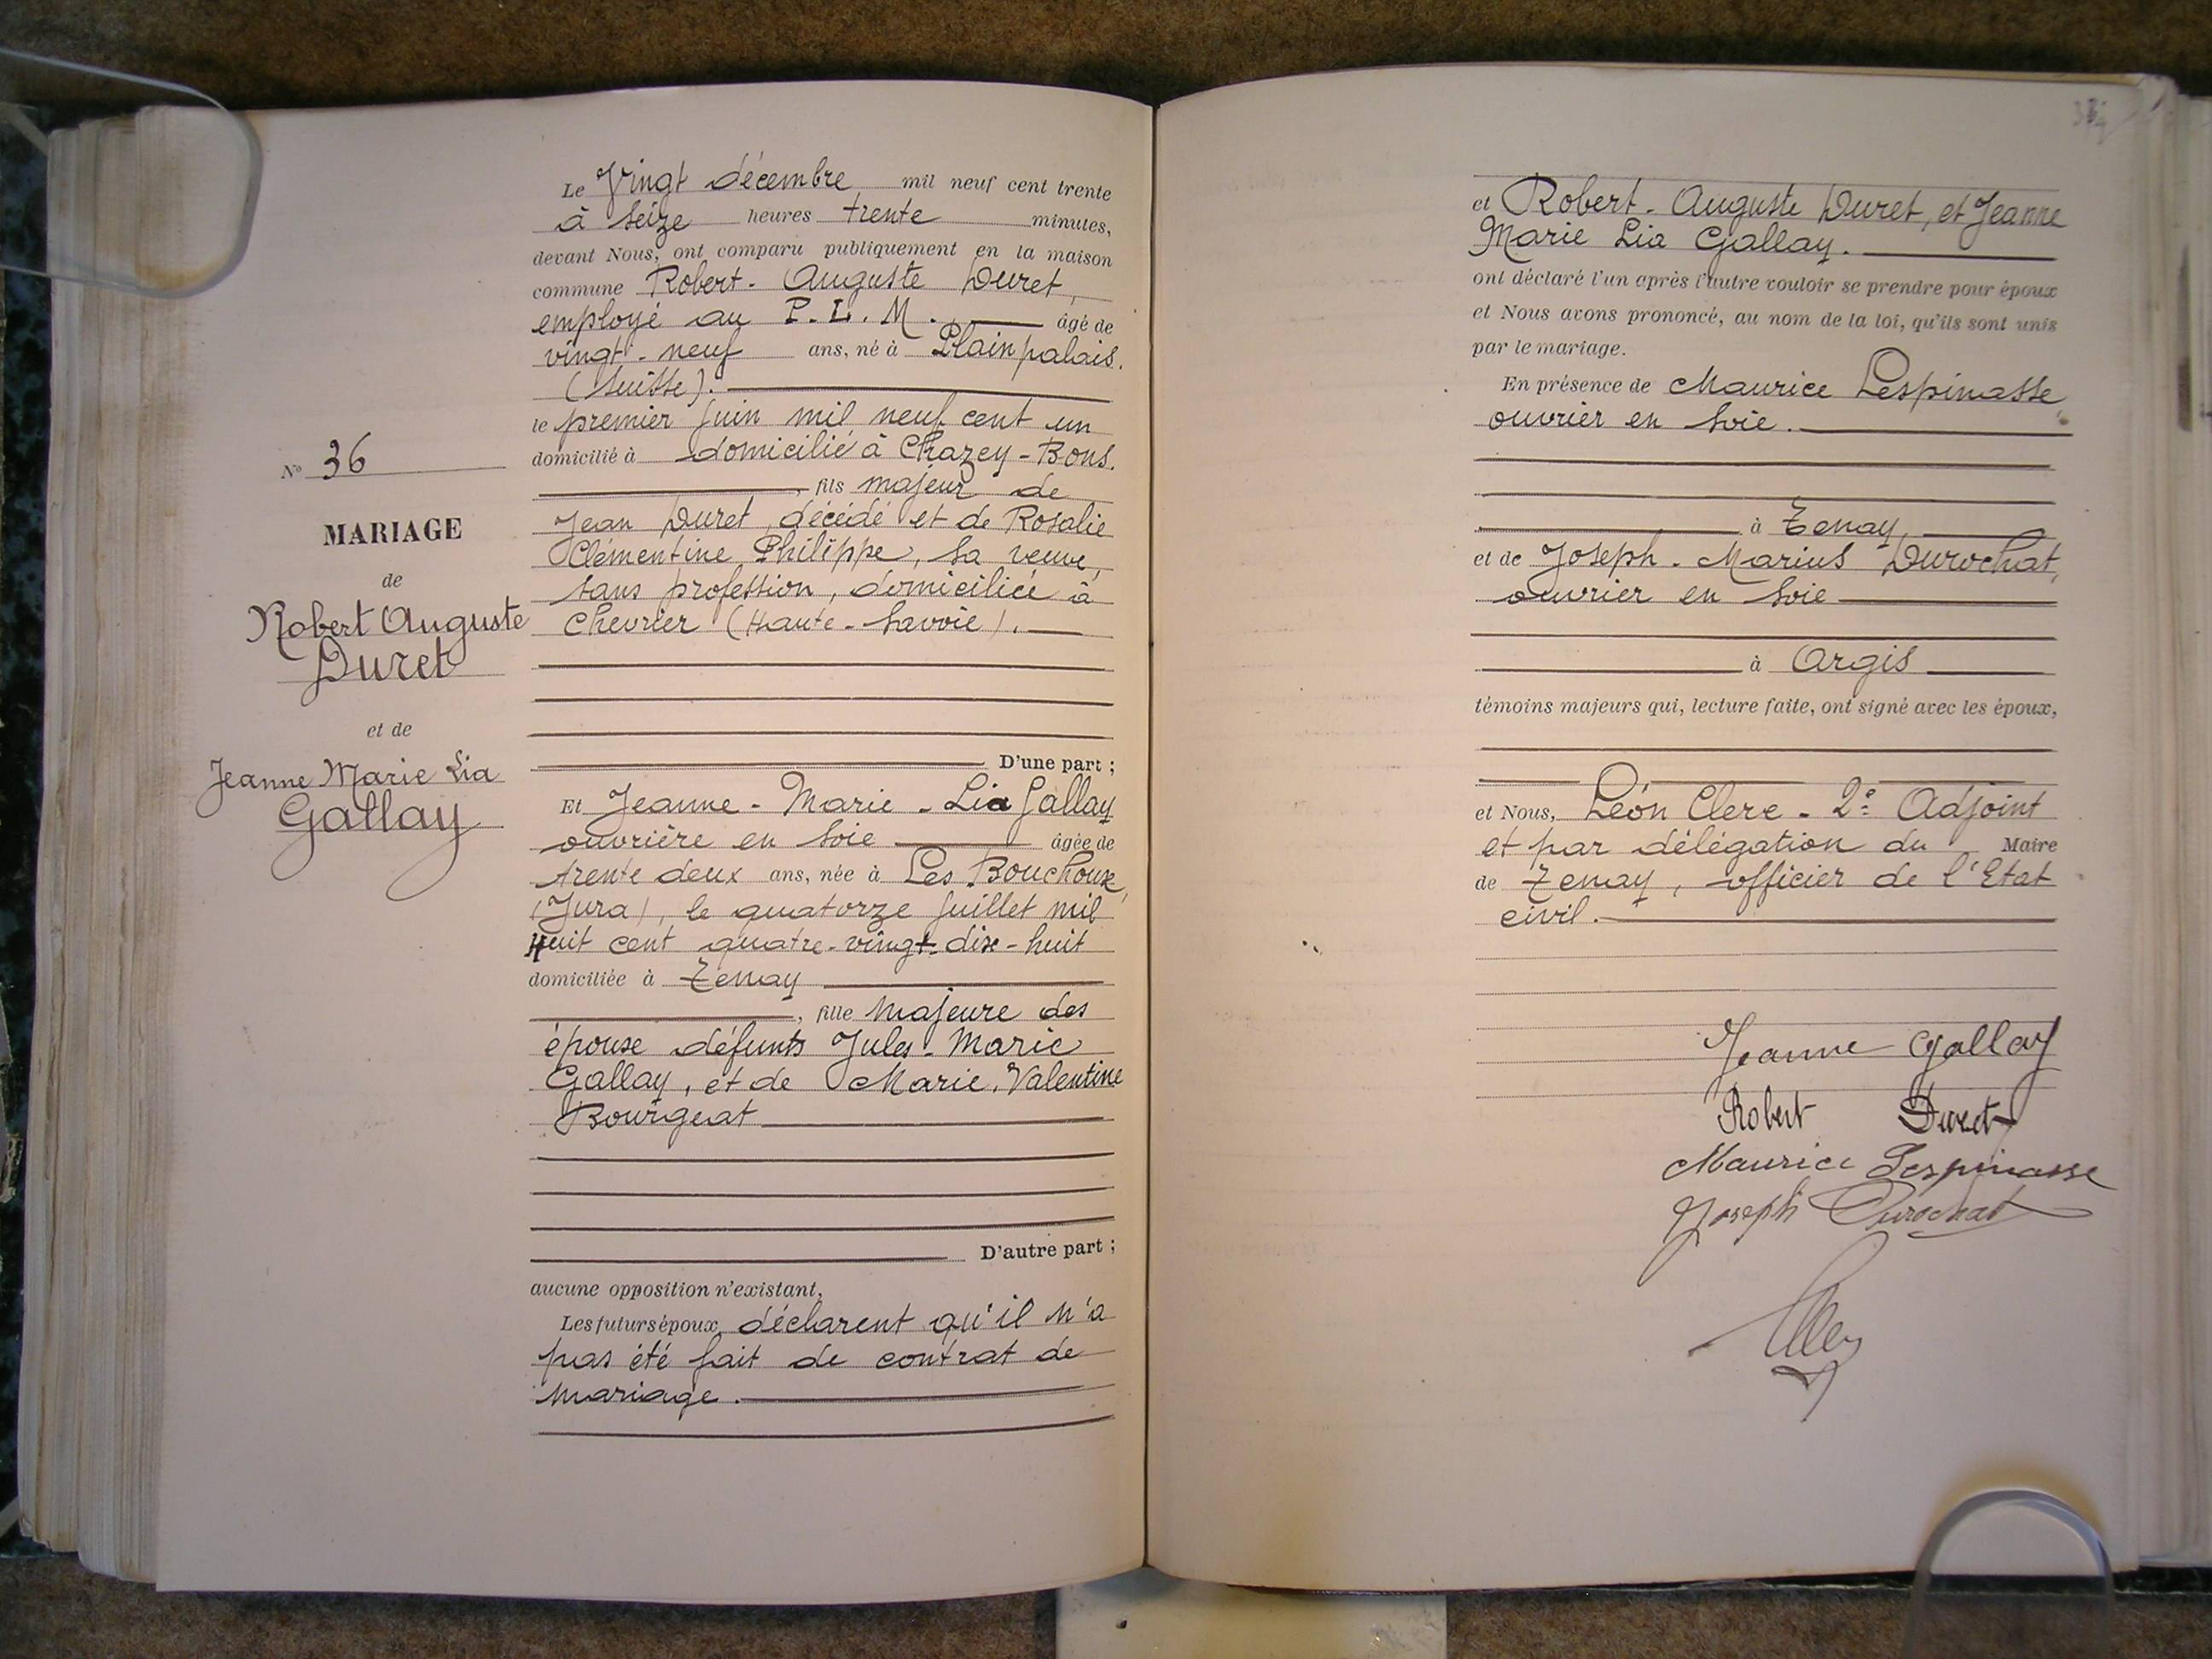 Nº 36
MARIAGE
de
Robert Auguste
Duret
et de
Jeanne Marie Lia
Gallay
Le Vingt décembre mil neuf cent trente
à seize heures trente minutes,
devant Nous, ont comparu publiquement en la maison
commune Robert-Auguste Duret,
employé au P.L.M. âgé de
vingt-neuf ans, né à Plainpalais.
(Suisse).
le premier juin mil neuf cent un
domicilié à domicilié à Chazey-Bons.
, fils majeur de
Jean Duret, décédé et de Rosalie
Clémentine Philippe, sa veuve,
sans profession, domiciliée à
Chevrier (Haute-Savoie).
D'une part ;
Et Jeanne-Marie-Lia Gallay
ouvrière en soie âgée de
trente deux ans, née à Les Bouchoux,
(Jura), le quatorze juillet mil
huit cent quatre-vingt-dix-huit
domiciliée à Tenay
, fille majeure des
épouse défunts Jules-Marie
Gallay, et de Marie-Valentine
Bourgeat
D'autre part ;
aucune opposition n'existant,
Les futurs époux déclarent qu'il n'a
pas été fait de contrat de
mariage.
et Robert-Auguste Duret, et Jeanne
Marie Lia Gallay.
ont déclaré l'un après l'autre vouloir se prendre pour époux
et Nous avons prononcé, au nom de la loi, qu'ils sont unis
par le mariage.
En présence de Maurice Lespinasse
ouvrier en soie.
à Tenay,
et de Joseph-Marius Durochat,
ouvrier en soie
à Argis
témoins majeurs qui, lecture faite, ont signé avec les époux,
et Nous, Léon Clerc-2e Adjoint
et par délégation du Maire
de Tenay, officier de l'Etat
civil.
Jeanne Gallay
Robert Duret
Maurice Lespinasse
Joseph Durochat